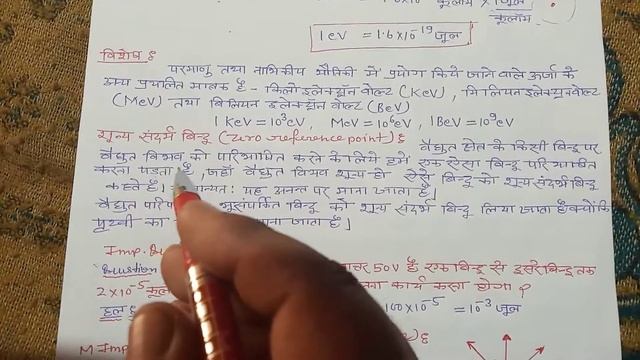 कूलॉम
1 eV = 1.6x10⁻¹⁹ जूल
विशेष :
परमाणु तथा नाभिकीय भौतिकी में प्रयोग किये जाने वाले ऊर्जा के
अन्य प्रचलित मात्रक हैं - किलो इलेक्ट्रॉन वोल्ट (KeV), मिलियन इलेक्ट्रॉन वोल्ट
(MeV) तथा बिलियन इलेक्ट्रॉन वोल्ट (BeV)
1 KeV = 10³eV, MeV = 10⁶eV, 1BeV = 10⁹eV
शून्य संदर्भ बिन्दु (zero reference point) :
वैद्युत क्षेत्र के किसी बिन्दु पर
वैद्युत विभव को परिभाषित करने के लिये हमें एक ऐसा बिन्दु परिभाषित
करना पड़ता है, जहाँ वैद्युत विभव शून्य हो ऐसे बिन्दु को शून्य संदर्भ बिन्दु
कहते हैं। यह अनन्त पर माना जाता है
वैद्युत भूसंपर्कित बिन्दु को शून्य संदर्भ बिन्दु लिया जाता है क्योंकि
पृथ्वी का जाता है]
Imp.
Question 50V है एक बिन्दु से दूसरे बिन्दु तक
2x10⁻⁵ कार्य करना होगा ?
हल : 100x10⁻⁵ = 10⁻³ जूल
M. Imp.